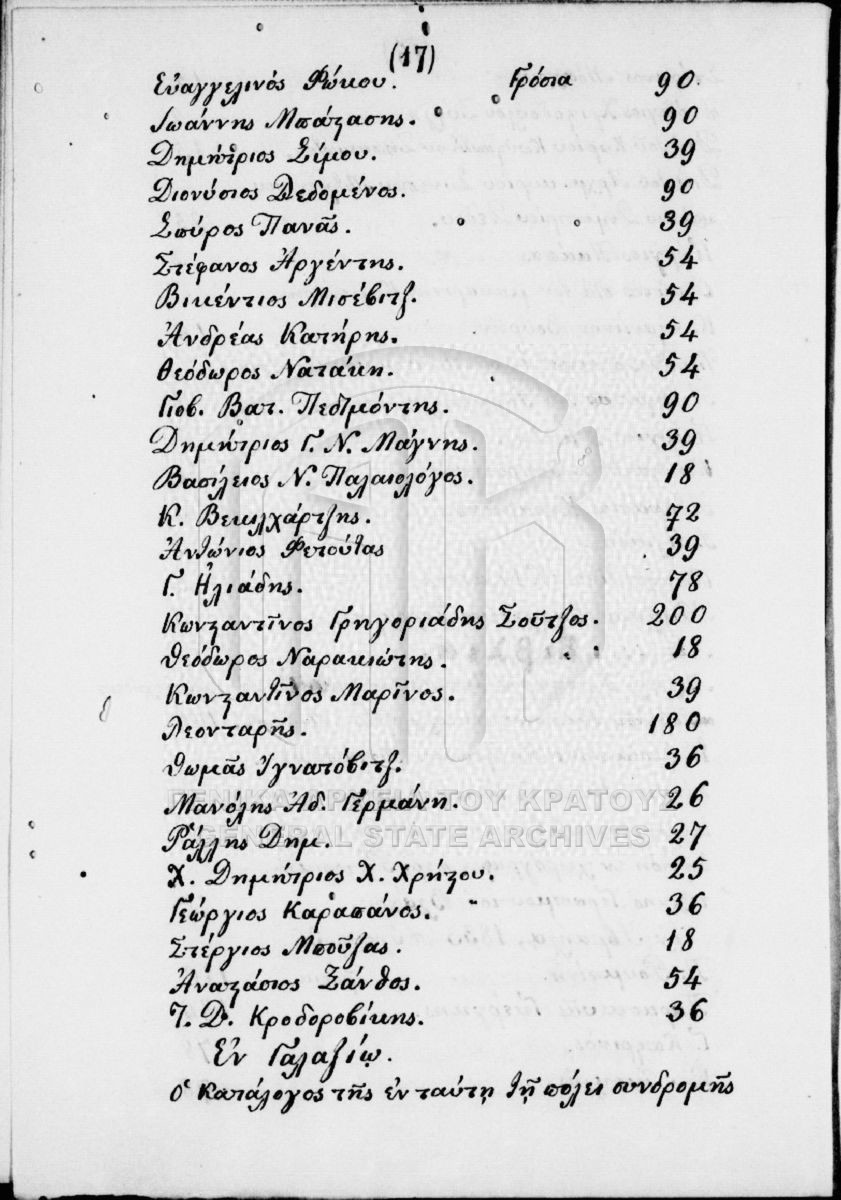 (17)
Εὐαγγελινός Φώκου. Γρόσια 90.
Ἰωάννης Μπάζασης. 90
Δημήτριος Σίμου. 39
Διονύσιος Δεδομένος. 90
Σπύρος Πανᾶς. 39
Στέφανος Ἀργέντης. 54
Βικέντιος Μισέβιτζ. 54
Ἀνδρέας Κατήρης. 54
Θεόδωρος Νατάκη. 54
Γιοβ. Βατ. Πεδιμόντης. 90
Δημήτριος Γ. Ν. Μάγνης. 39
Βασίλειος Ν. Παλαιολόγος. 18
Κ. Βεκιλχάρτζης. 72
Ἀντώνιος Φετούτας 39
Γ. Ἠλιάδης. 78
Κωνσταντῖνος Γρηγοριάδης Σοῦτζος. 200
Θεόδωρος Ναρακιώτης. 18
Κωνσταντῖνος Μαρῖνος. 39
Λεονταρῆς. 180
Θωμᾶς Ἰγνατόβιτζ. 36
Μανόλης Ἀδ. Γερμάνη. 26
ΓΕΝΙΚΑ ΑΡΧΕΙΑ ΤΟΥ ΚΡΑΤΟΥΣ
Ῥάλλης Δημ. 27
GENERAL STATE ARCHIVES
Χ. Δημήτριος Χ. Χρήστου. 25
Γεώργιος Καραπάνος. 36
Στέργιος Μποῦζας. 18
Ἀναστάσιος Ξάνθος. 54
Ἰ. Δ. Κροδοροβίκης. 36
Ἐν Γαλαζίῳ.
Ὁ κατάλογος τῆς ἐν ταύτῃ τῇ πόλει συνδρομῆς